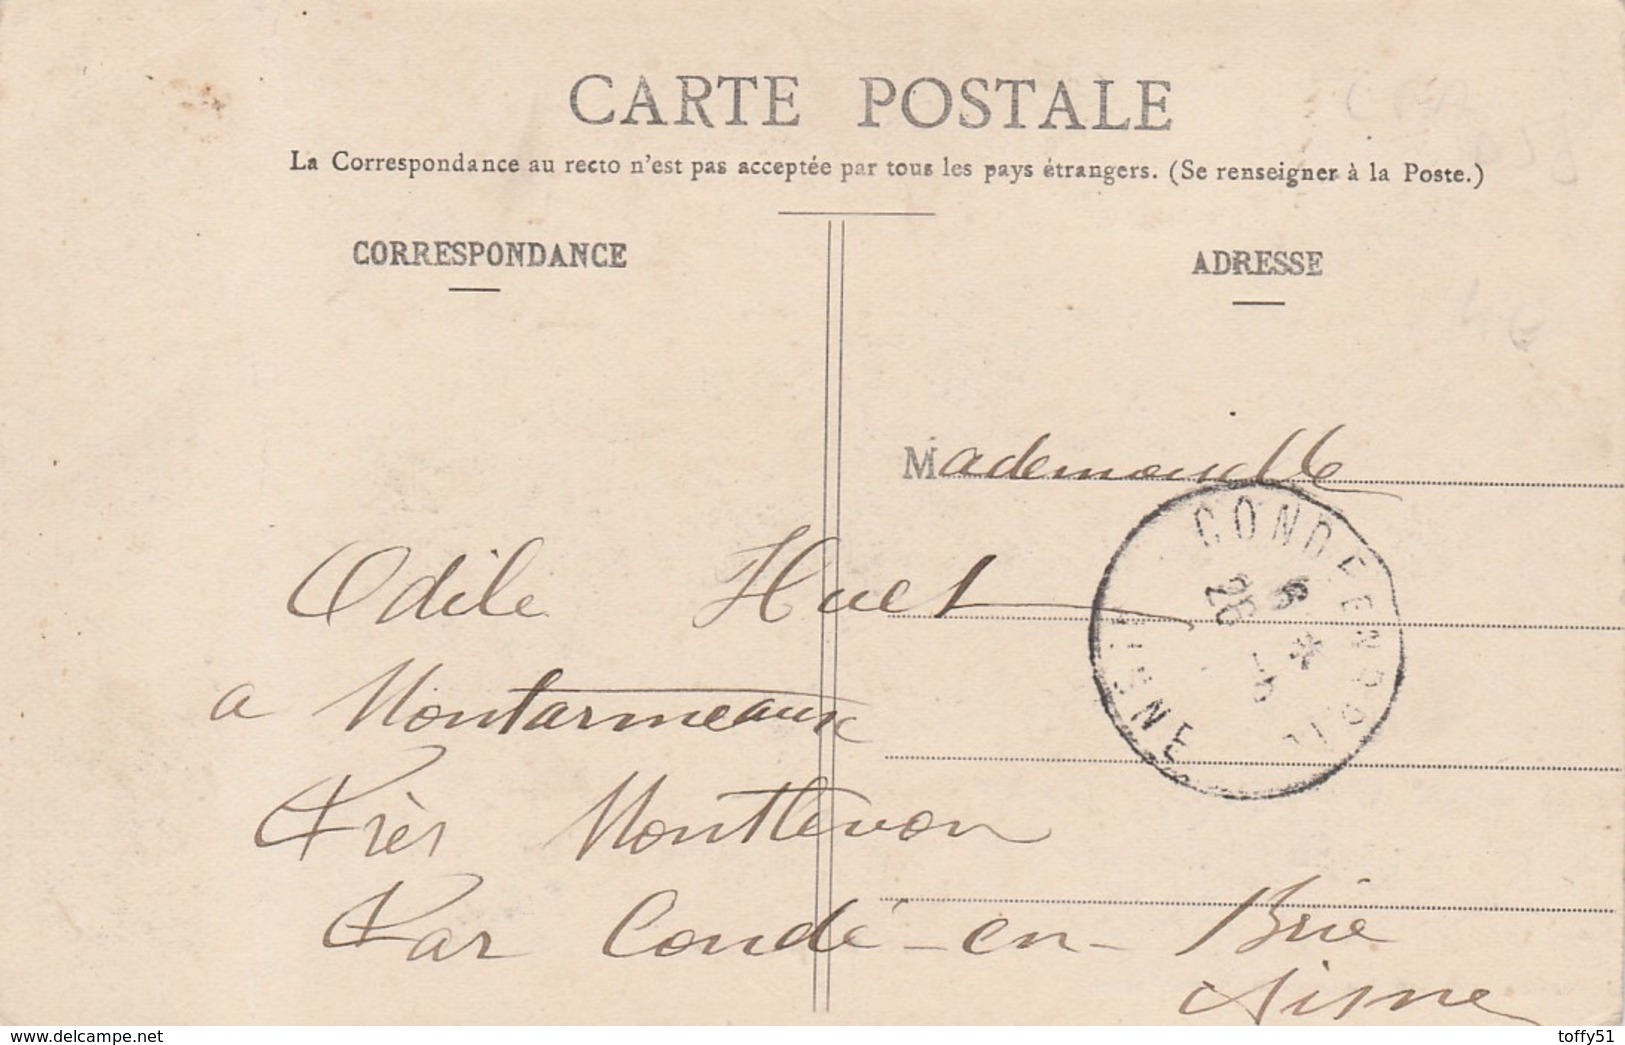 CARTE POSTALE
La Correspondance au recto n'est pas acceptée par tous les pays étrangers. (Se renseigner à la Poste.)
CORRESPONDANCE
ADRESSE
Mademoiselle
CONDE EN BRIE
6 *
26 -6
AISNE
Odile Huet
a Montarmeaux
Près Montlevon
Par Condé-en-Brie
Aisne
www.delcampe.net
toffy51